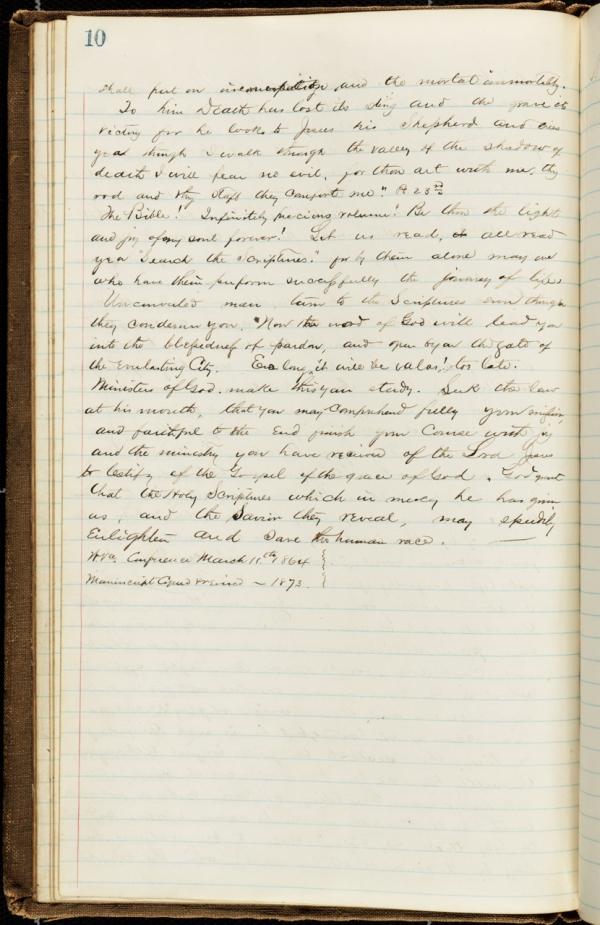 10
shall put on incorruption and the mortal immortality.
To him Death has lost its sting and the grave its
victory for he looks to Jesus his Shepherd and cries
yea though I walk through the valley of the shadow of
death I will fear no evil, for thou art with me, thy
rod and thy staff they comfort me." Ps 23rd
The Bible! Infinitely precious volume! Be thou the light
and joy of my soul forever! Let us read, all read
yea "Search the Scriptures." for by them alone may we
who have them perform successfully the journey of life.
Unconverted man turn to the Scriptures even though
they condemn you. Now the word of God will lead you
into the blessedness of pardon, and open to you the gate of
the Everlasting City. Ere long, it will be too late.
Ministers of God. make this your study. Seek the law
at his mouth, that you may comprehend fully your mission,
and faithful to the End finish your Course with joy
and the ministry you have received of the Lord Jesus
to testify of the Gospel of the grace of God. God grant
that the Holy Scriptures which in mercy he has given
us, and the Savior they reveal, may speedily
Enlighten and Save the human race.
Conference March 11th 1864
Manuscript Copied & revised — 1873.